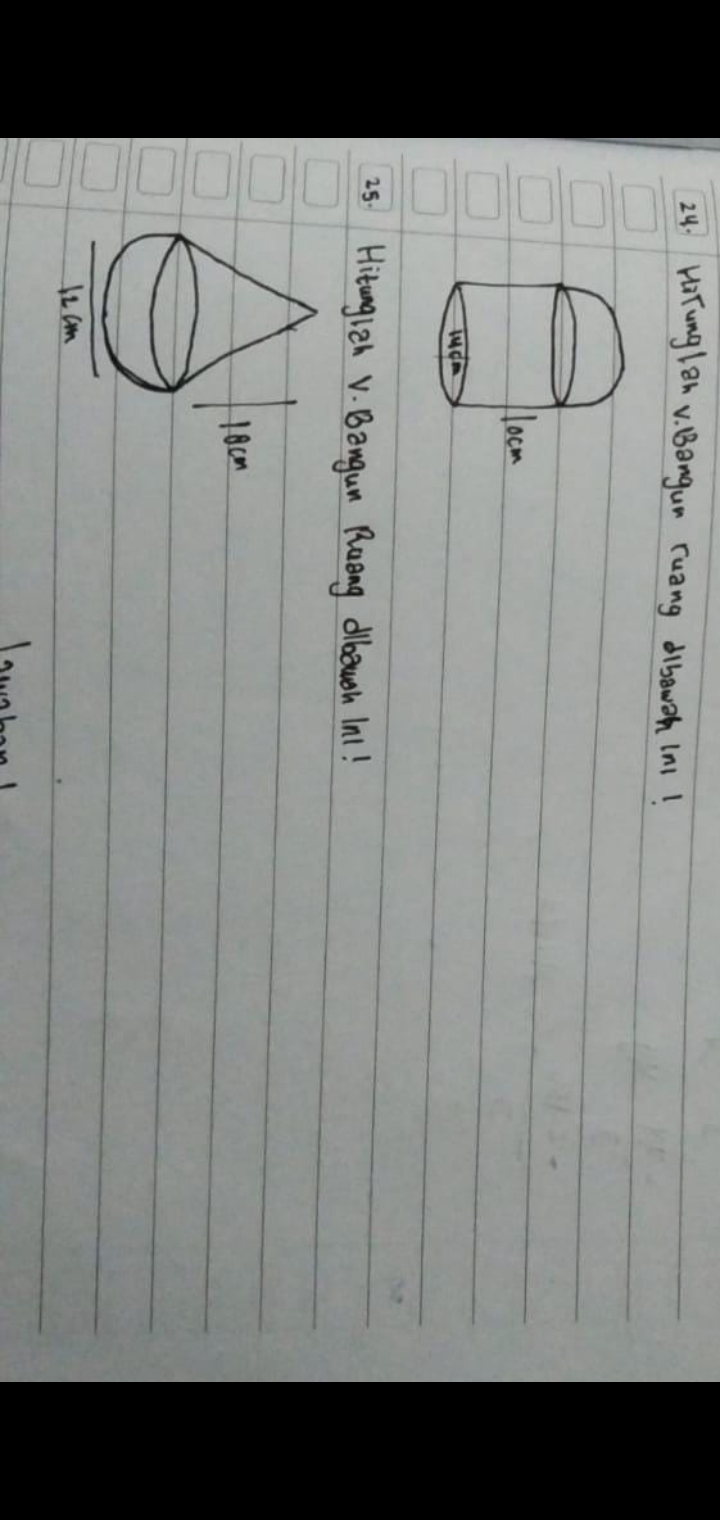 24. HiTunglah V.Bangun ruang dibawah Ini !
14cm
10cm
25. Hitunglah V. Bangun Ruang dibawah Ini !
18cm
12 cm
Jawaban !